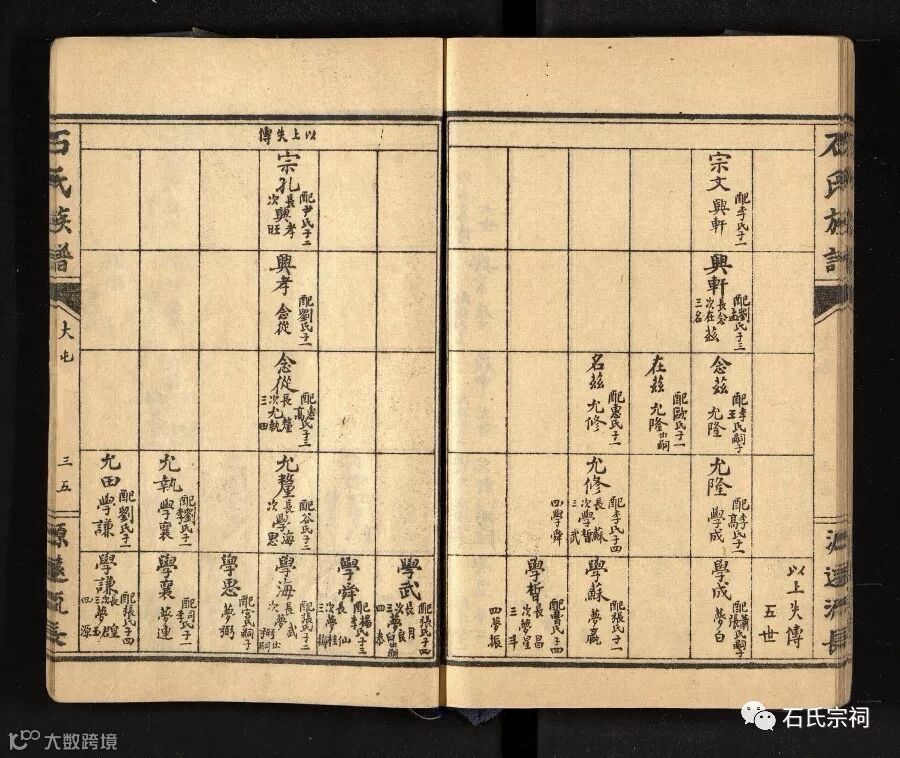 石氏族譜
源遠流長
以上失傳
五世
宗文 興軒
配李氏子一
興軒
配劉氏子三
長念茲
次在茲
三名茲
念茲 允隆
配李王氏嗣子
在茲 允隆出嗣
配歐氏子一
名茲 允修
配惠氏子一
允隆 學成
配李高氏子一
允修
配李氏子四
長學蘇
次學晳
三學武
四學舜
學成 夢白
配張氏嗣子
學蘇 夢贏
配張氏子一
學晳
配曹氏子四
長夢昌
次夢星
三夢斗
四夢振
以上失傳
宗孔
配尹氏子二
長興孝
次興旺
興孝 念從
配劉氏子一
念從
配惠高氏子三
長允釐
次允執
三允田
允釐
配谷氏子二
長學海
次學思
允執 學襄
配劉李氏子一
允田 學謙
配劉氏子一
學武
配張氏子四
學舜
配楊李氏子三
學海
配張氏子二
長夢武
次夢弼出嗣
學思 夢弼
配宮氏嗣子
學襄 夢連
配周李氏子一
學謙
配張氏子四
石氏族譜
大屯
三五
源遠流長
石氏宗祠
大数跨境